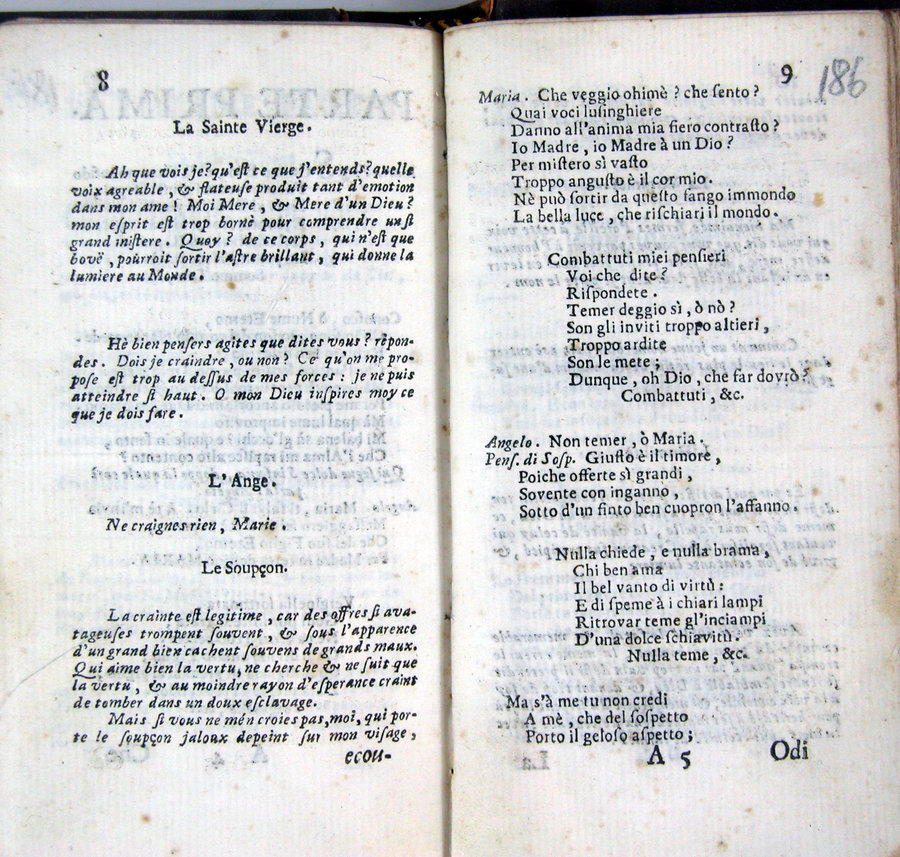 8
La Sainte Vierge.
Ah que vois je? qu'eſt ce que j'entends? quelle
voix agreable, & flateuse produit tant d'emotion
dans mon ame! Moi Mere, & Mere d'un Dieu?
mon eſprit eſt trop bornè pour comprendre un ſi
grand miſtere. Quoy? de ce corps, qui n'eſt que
bovë, pourroit ſortir l'aſtre brillant, qui donne la
lumiere au Monde.
Hè bien penſers agites que dites vous? rèpon-
des. Dois je craindre, ou non? Ce qu'on me pro-
pose eſt trop au deſſus de mes forces: je ne puis
atteindre ſi haut. O mon Dieu inſpires moy ce
que je dois fare.
L'Ange.
Ne craignes rien, Marie.
Le Soupçon.
La crainte eſt legitime, car des offres ſi ava-
tageuſes trompent ſouvent, & ſous l'apparence
d'un grand bien cachent ſouvens de grands maux.
Qui aime bien la vertu, ne cherche & ne ſuit que
la vertu, & au moindre rayon d'eſperance craint
de tomber dans un doux eſclavage.
Mais ſi vous ne mèn croies pas, moi, qui por-
te le ſoupçon jaloux depeint ſur mon viſage,
A 4
ecou-
9
186
Maria. Che veggio ohimè? che ſento?
Quai voci luſinghiere
Danno all'anima mia fiero contraſto?
Io Madre, io Madre à un Dio?
Per miſtero sì vaſto
Troppo anguſto è il cor mio.
Nè può ſortir da queſto fango immondo
La bella luce, che riſchiari il mondo.
Combattuti miei penſieri
Voi che dite?
Riſpondete.
Temer deggio sì, ò nò?
Son gli inviti troppo altieri,
Troppo ardite
Son le mete;
Dunque, oh Dio, che far dovrò?
Combattuti, &c.
Angelo. Non temer, ò Maria.
Penſ. di Soſp. Giuſto è il timore,
Poiche offerte sì grandi,
Sovente con inganno,
Sotto d'un finto ben cuopron l'affanno.
Nulla chiede, e nulla brama,
Chi ben ama
Il bel vanto di virtù:
E di ſpeme à i chiari lampi
Ritrovar teme gl'inciampi
D'una dolce ſchiavitù.
Nulla teme, &c.
Ma s'à me tu non credi
A mè, che del ſoſpetto
Porto il geloso aſpetto;
A 5
Odi